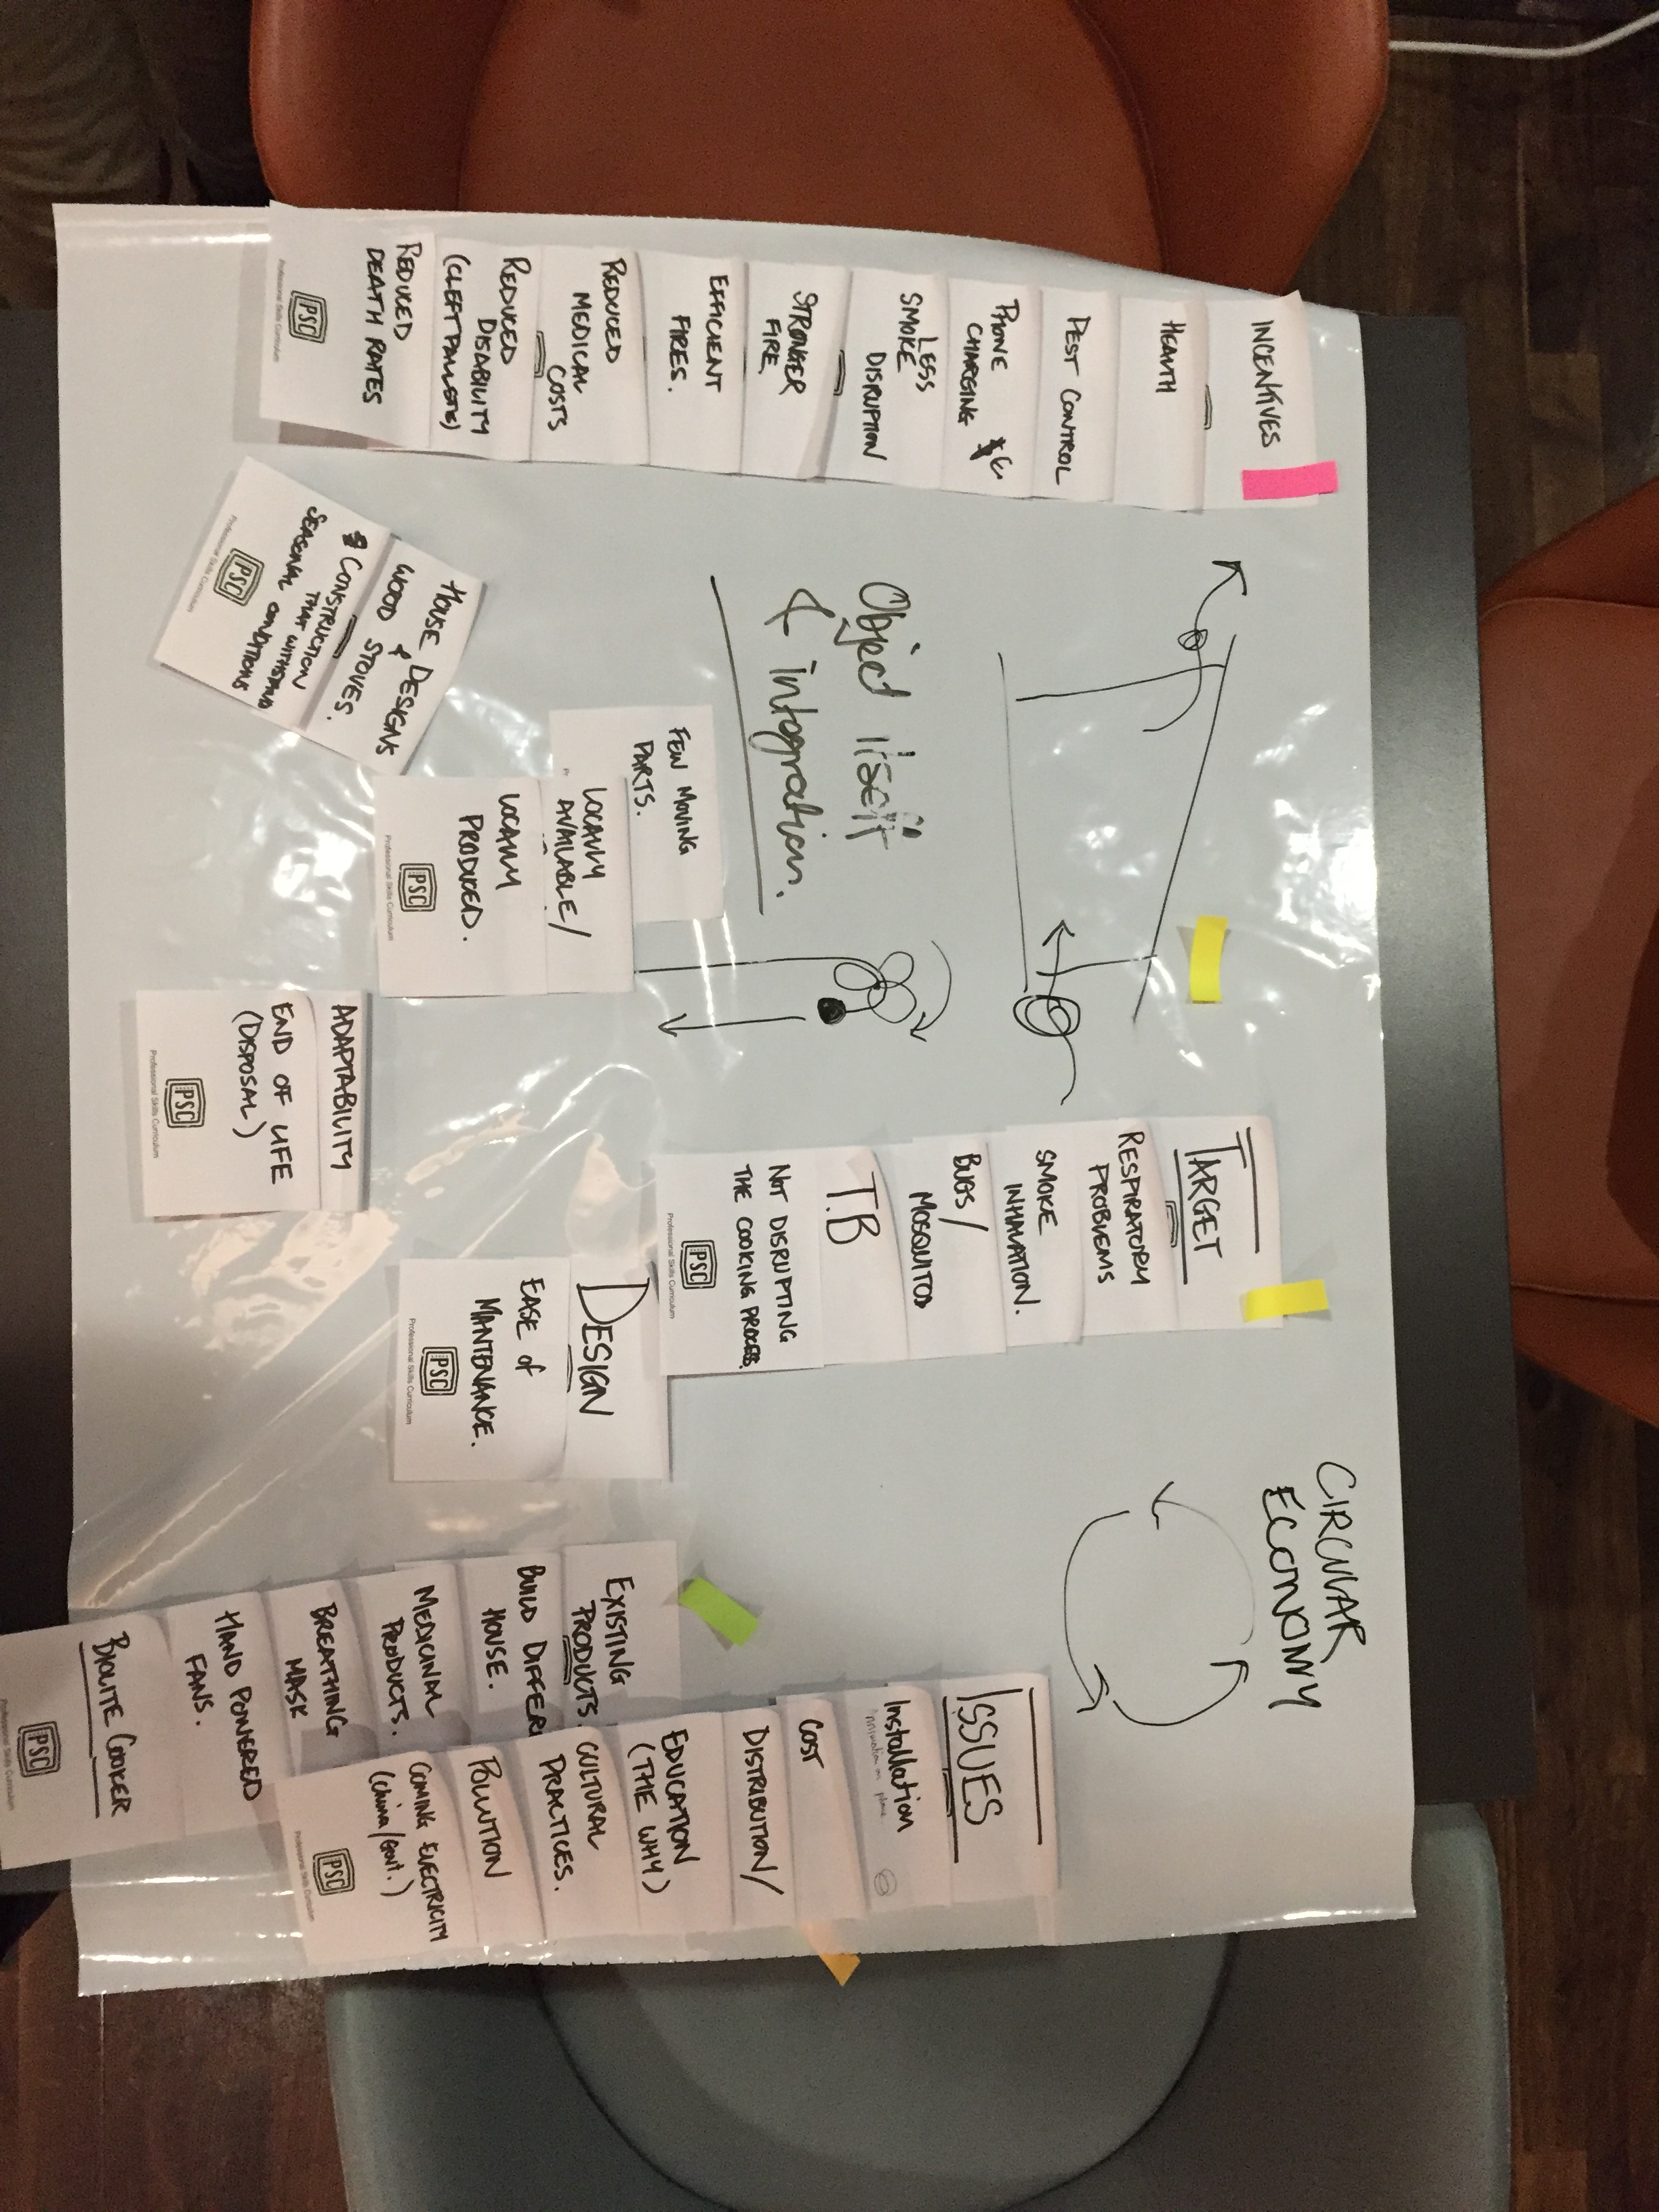 INCENTIVES
HEALTH
PEST CONTROL
PHONE
CHARGING
LESS
SMOKE
DISRUPTION
STRONGER
FIRE
EFFICIENT
FIRES.
REDUCED
MEDICAL
COSTS
REDUCED
DISABILITY
(CLEFT PALLETS)
REDUCED
DEATH RATES
PSC
Professional Skills Curriculum
HOUSE DESIGNS
&
WOOD STOVES.
CONSTRUCTION
THAT WITHSTAND
SEASONAL CONDITIONS
PSC
Professional Skills Curriculum
Object itself
& integration.
FEW MOVING
PARTS.
LOCALLY
AVAILABLE/
LOCALLY
PRODUCED.
PSC
Professional Skills Curriculum
ADAPTABILITY
END OF LIFE
(DISPOSAL)
PSC
Professional Skills Curriculum
TARGET
RESPIRATORY
PROBLEMS
SMOKE
INHALATION.
BUGS/
MOSQUITOS
T.B
NOT DISRUPTING
THE COOKING PROCESS.
PSC
Professional Skills Curriculum
DESIGN
EASE of
MANTENANCE.
PSC
Professional Skills Curriculum
CIRCULAR
ECONOMY
EXISTING
PRODUCTS.
BUILD DIFFER
HOUSE.
MEDICINAL
PRODUCTS.
BREATHING
MASK
HAND POWERED
FANS.
BIOLITE COOKER
PSC
Professional Skills Curriculum
ISSUES
Installation
COST
DISTRIBUTION/
EDUCATION
(THE WHY)
CULTURAL
PRACTICES.
POLLUTION
COMING ELECTRICITY
(China/Govt.)
PSC
Professional Skills Curriculum